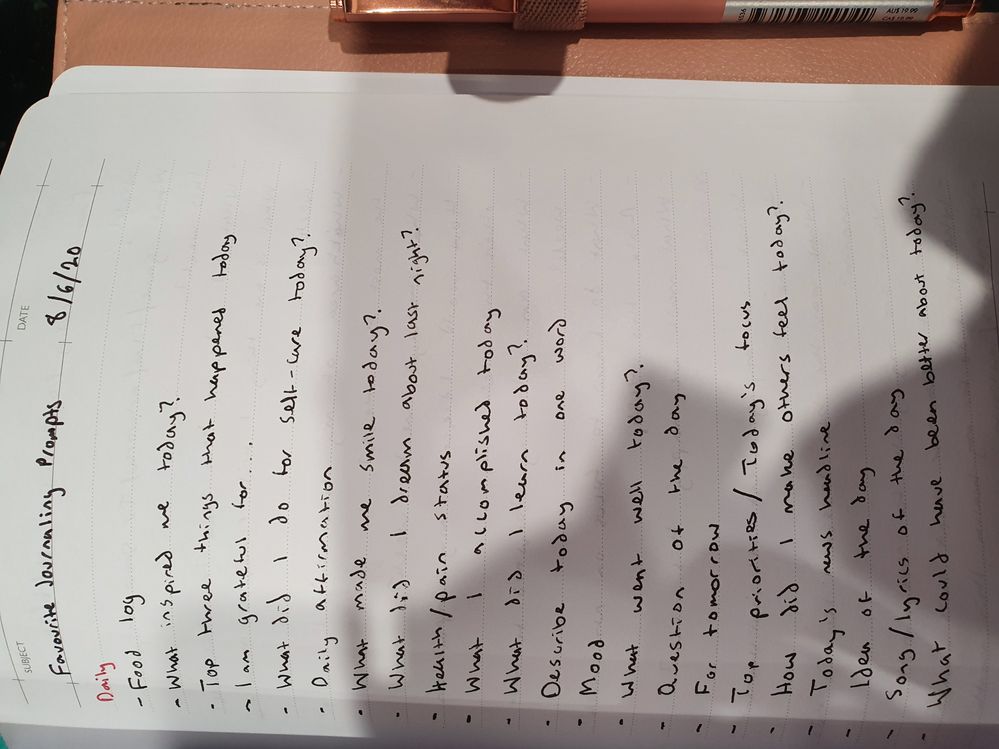 SUBJECT
DATE
Favourite Journaling Prompts
8/6/20
Daily
- Food log
- What inspired me today?
- Top three things that happened today
- I am grateful for...
- What did I do for self-care today?
- Daily affirmation
- What made me smile today?
- What did I dream about last night?
- Health/pain status
- What I accomplished today
- What did I learn today?
- Describe today in one word
- Mood
- What went well today?
- Question of the day
- For tomorrow
- Top priorities/Today's focus
- How did I make others feel today?
- Today's news headline
- Idea of the day
- Song/lyrics of the day
- What could have been better about today?